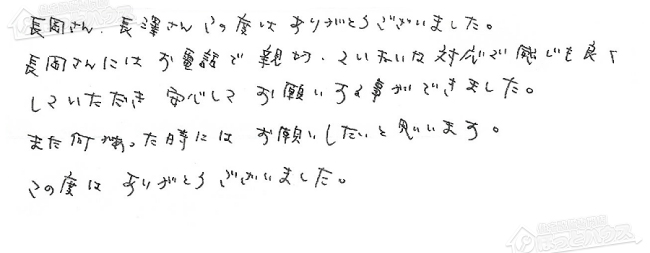 長岡さん、長澤さん この度は ありがとうございました。
長岡さんには お電話で 親切、ていねいな 対応で 感じも良く
していただき 安心して お願いする事ができました。
また何かあった時には お願いしたいと思います。
この度は ありがとうございました。